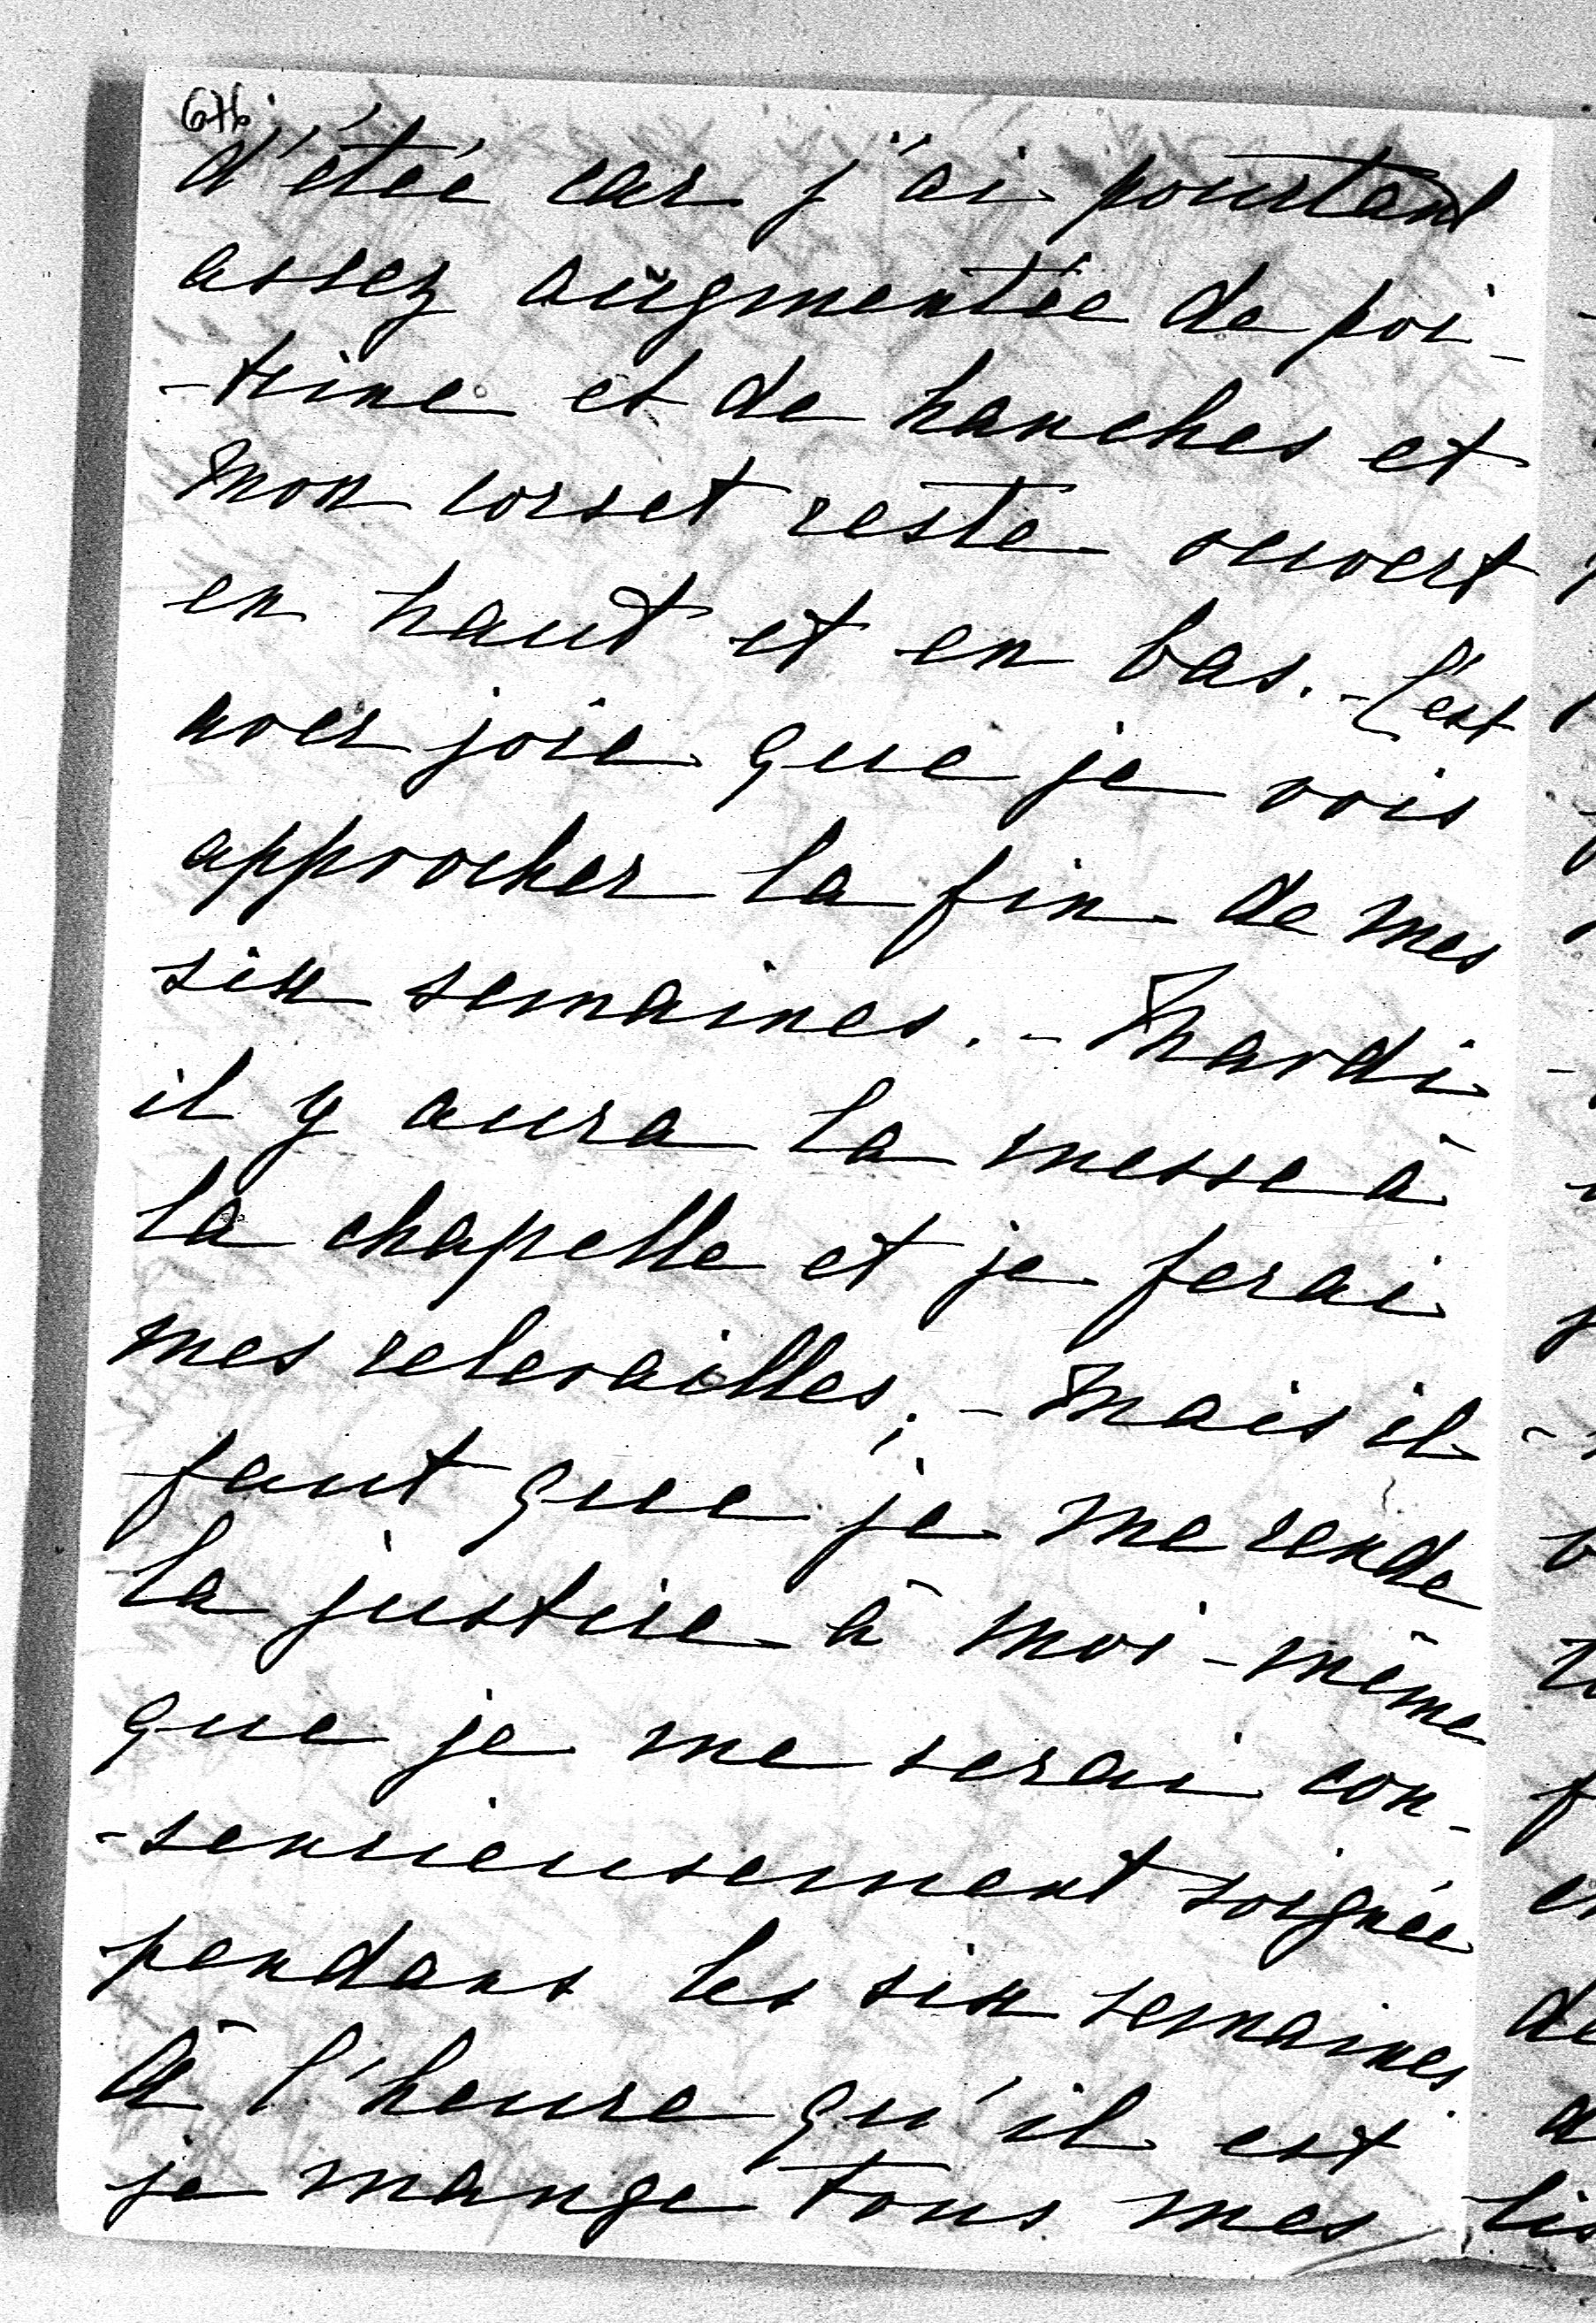 d'étée car j'ai pourtant
assez augmentée de poi-
-trine et de hanches et
mon corset reste ouvert
en haut et en bas. - C'est
avec joie que je vois
approcher la fin de mes
six semaines. - Mardi
il y aura la messe à
la chapelle et je ferai
mes relevailles; - Mais il
faut que je me rende
la justice à moi-même
que je me serai con-
-sencieusement soignée
pendans les six semaines
A l'heure qu'il est
je mange tous mes